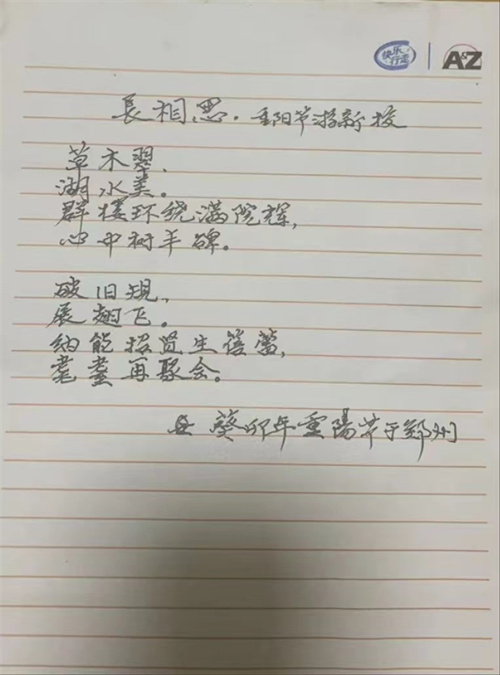 快乐
行走
A&Z
長相思·重阳节游新校
草木翠,
湖水美。
群楼环绕满院辉,
心中树丰碑。
破旧规,
展翅飞。
纳能招贤生蓓蕾,
耄耋再聚会。
癸卯年重陽节于郑州